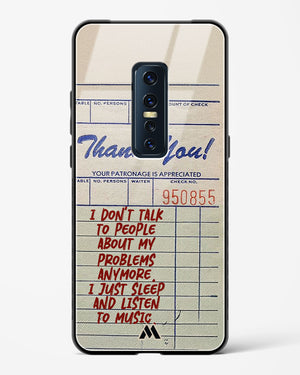 TABLE NO. PERSONS OUNT OF CHECK
Than You!
YOUR PATRONAGE IS APPRECIATED
TABLE NO. PERSONS WAITER CHECK NO.
950855
I DON'T TALK
TO PEOPLE
ABOUT MY
PROBLEMS
ANYMORE.
I JUST SLEEP
AND LISTEN
TO MUSIC